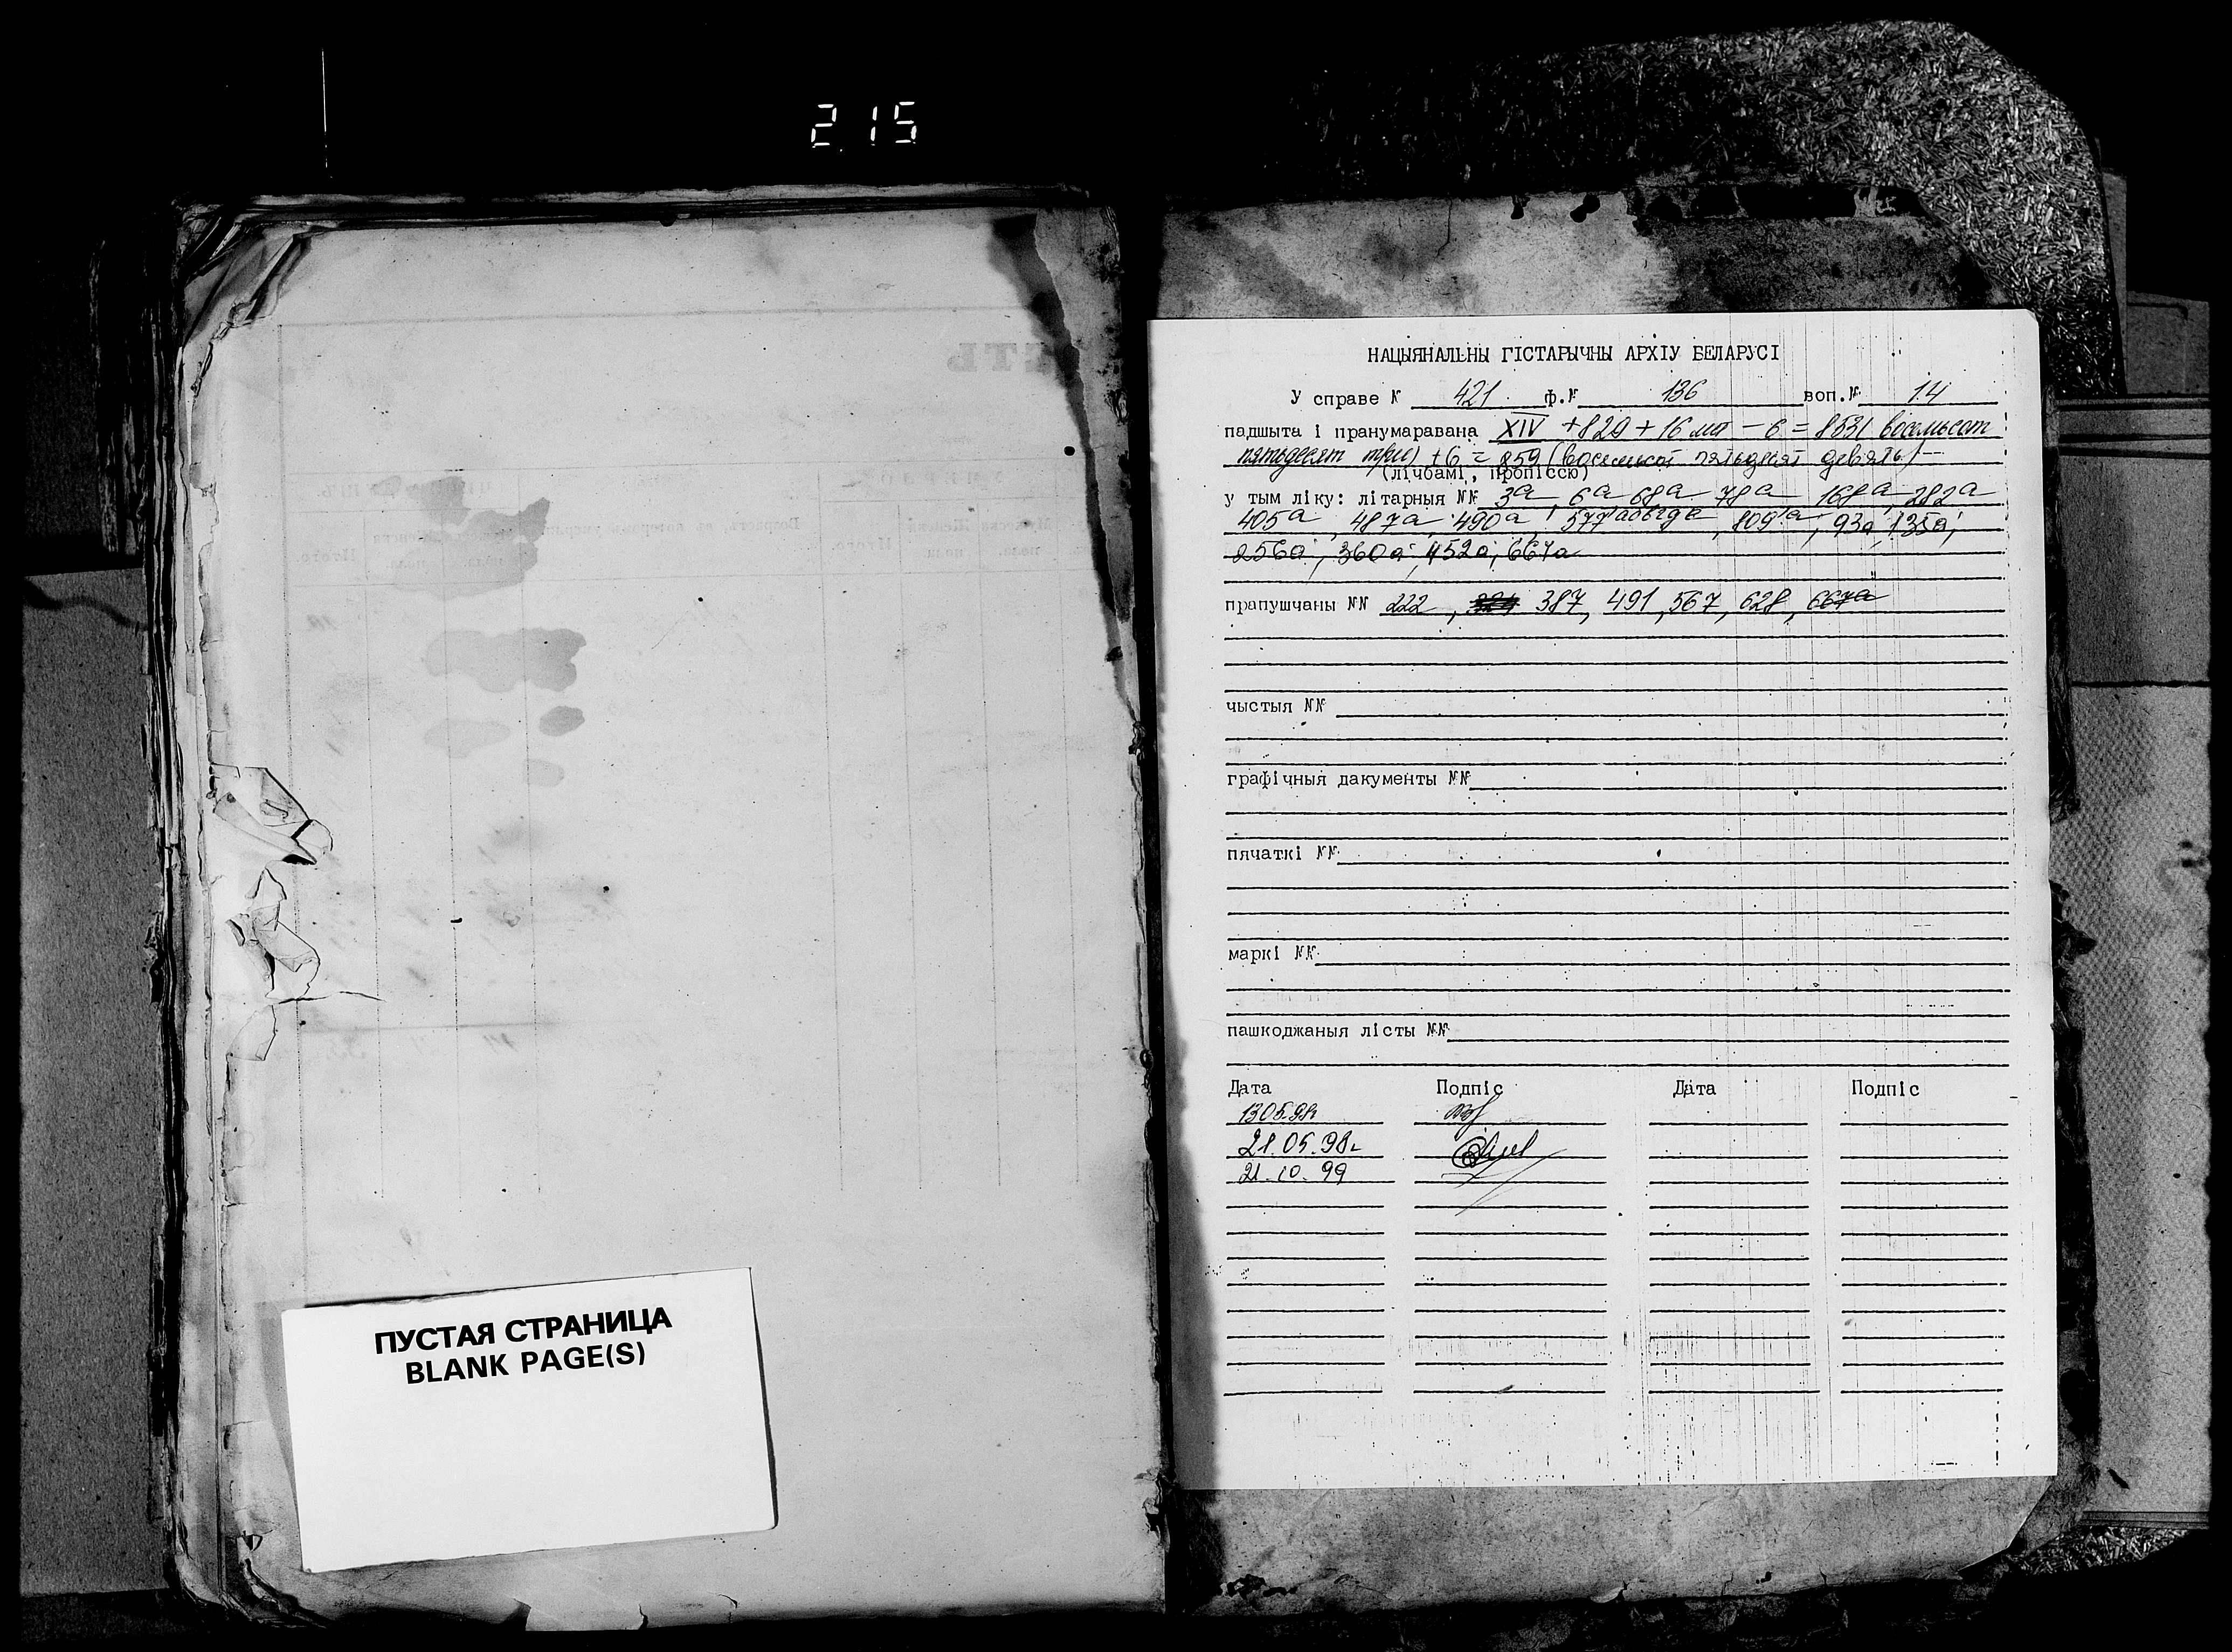 215
ПУСТАЯ СТРАНИЦА
BLANK PAGE(S)
НАЦЫЯНАЛЬНЫ ГІСТАРЫЧНЫ АРХІУ БЕЛАРУСІ
У справе № 421 ф.№ 136 воп.№ 14
падшыта і пранумаравана XIV + 829 + 16 - 6 = 853( восемьсот
пятьдесят три) + 6 = 859 (восемьсот пятьдесят девять)
(лічбамі, пропіссю)
у тым ліку: літарныя №№ 3а, 6а, 68а, 78а, 168а, 282а
405а, 487а, 490а, 577абвгде, 809а, 93а, 135а,
256а, 360а, 452а, 667а
прапушчаны №№ 222, 387, 491, 567, 628, 667а
чыстыя №№
графічныя дакументы №№
пячаткі №№
маркі №№
пашкоджаныя лісты №№
Дата Подпіс Дата Подпіс
13.05.98г
21.05.98г
21.10.99